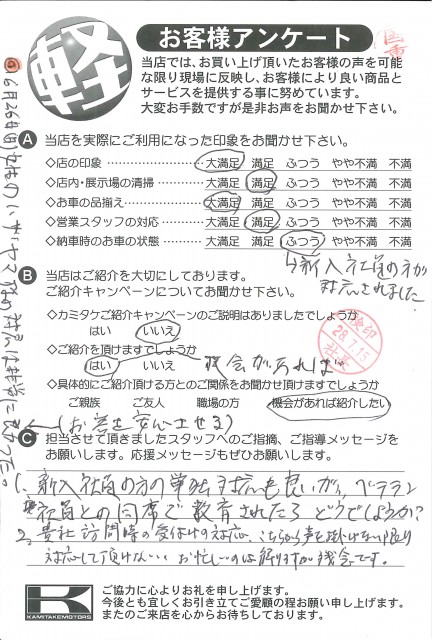 軽
お客様アンケート
当店では、お買い上げ頂いたお客様の声を可能
な限り現場に反映し、お客様により良い商品と
サービスを提供する事に努めています。
大変お手数ですが是非お声をお聞かせ下さい。
A 当店を実際にご利用になった印象をお聞かせ下さい。
◇店の印象 大満足 満足 ふつう やや不満 不満
◇店内・展示場の清掃 大満足 満足 ふつう やや不満 不満
◇お車の品揃え 大満足 満足 ふつう やや不満 不満
◇営業スタッフの対応 大満足 満足 ふつう やや不満 不満
◇納車時のお車の状態 大満足 満足 ふつう やや不満 不満
↳新入社員の方が
対応されました
B 当店はご紹介を大切にしております。
ご紹介キャンペーンについてお聞かせ下さい。
◇カミタケご紹介キャンペーンのご説明はありましたでしょうか
はい いいえ
28.7.15
◇ご紹介を頂けますでしょうか
はい いいえ 機会があれば
◇具体的にご紹介頂ける方とのご関係をお聞かせ頂けますでしょうか
ご親族 ご友人 職場の方 機会があれば紹介したい
(お客を安心させる)
C 担当させて頂きましたスタッフへのご指摘、ご指導メッセージを
お願いします。応援メッセージもぜひお願いします。
1、新入社員の方の単独対応も良いが、ベテラン
社員との同席で教育されたらどうでしょうか?
2、貴社訪問時の受付の対応、こちらから声を掛けない限り
対応して頂けない、お忙しいのは解りますが残念です。
6月26日(日)
対応は非常に
K
KAMITAKEMOTORS
ご協力に心よりお礼を申し上げます。
今後とも宜しくお引き立てご愛顧の程お願い申し上げます。
またのご来店を心からお待ちしております。